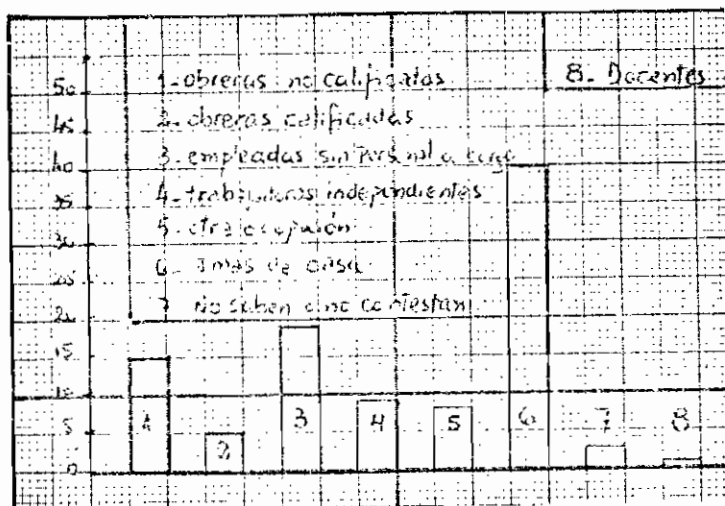 50
45
40
35
30
25
20
15
10
5
0
1-obreras no calificadas
2-obreras calificadas
3-empleadas sin personal a cargo
4-trabajadoras independientes
5-otra ocupasión
6- Amas de casa
7 No saben o no contestan
8- Docentes
1
2
3
4
5
6
7
8